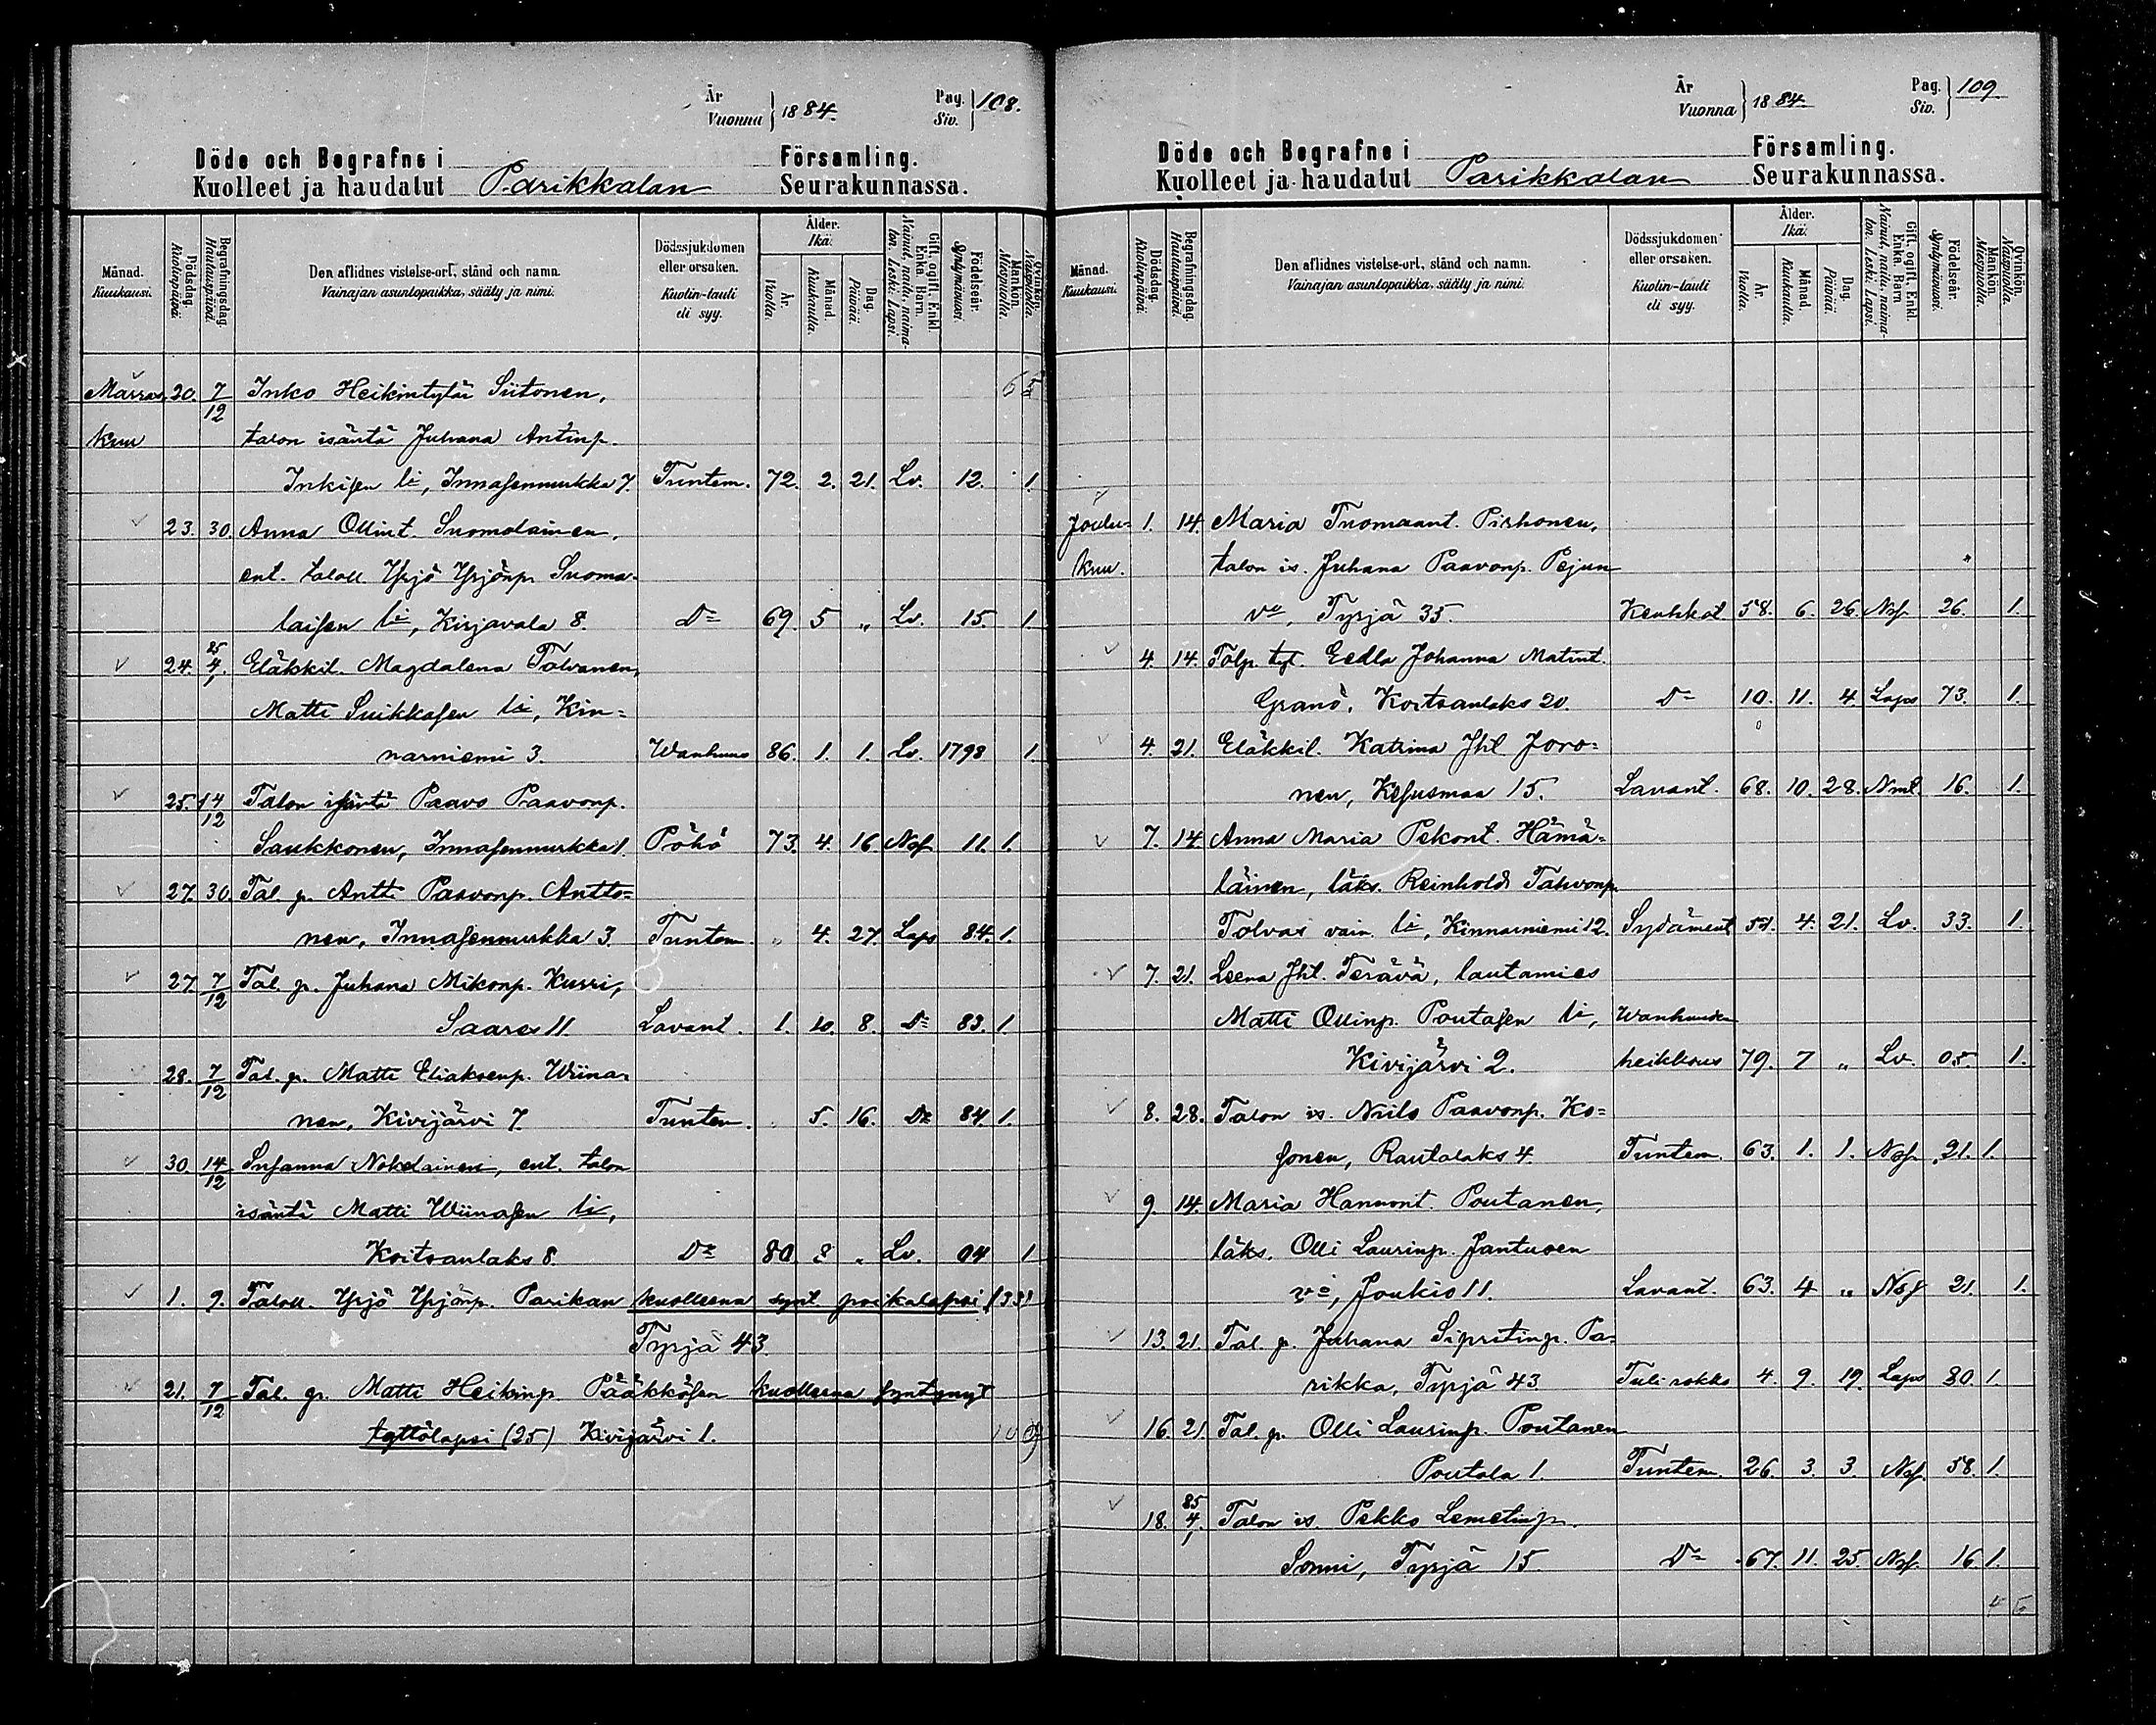 År
Vuonna } 1884. Pag.
Siv. } 108.
Döde och Begrafne i Församling.
Kuolleet ja haudatut Parikkalan Seurakunnassa.
Månad. Kuukausi.
Dödsdag. Kuolinpäivä.
Begrafningsdag. Hautauspäivä.
Den aflidnes vistelse-ort, stånd och namn.
Vainajan asuntopaikka, sääty ja nimi.
Dödssjukdomen eller orsaken.
Kuolin-tauti eli syy.
Ålder. Ikä.
År. Vuotta.
Månad. Kuukautta.
Dag. Päivää.
Gift, ogift, Enkl. Enka. Barn.
Nainut, naitu, naimaton. Leski. Lapsi.
Födelseår. Syntymävuosi.
Mankön. Miespuolia.
Qvinkön. Naispuolia.
Marras 20. 7/12 Inko Heikintytär Siitonen, 6 5
kuu talon isäntä Juhana Antinp.
Inkisen li, Innasenmukka 7. Tuntem. 72. 2. 21. Lv. 12. 1.
23. 30. Anna Ollint. Suomalainen,
ent. taloll. Yrjö Yrjönp. Suoma-
laisen li, Kirjavala 8. Do 69. 5 „ Lv. 15. 1.
24. 85 4/1. Eläkkil. Magdalena Tolvanen,
Matti Suikkasen li, Kin=
narniemi 3. Wanhuus 86. 1. 1. Lv. 1798 1.
25. 14/12 Talon isäntä Paavo Paavonp.
Saukkonen, Innasenmukka 1. Pöhö 73. 4. 16. Nsf 11. 1.
27. 30. Tal. p. Antti Paavonp. Antto=
nen, Innasenmukka 3. Tuntem. „ 4. 27. Laps 84. 1.
27. 7/12 Tal. p. Juhana Mikonp. Kurri,
Saares 11. Lavant. 1. 10. 8. Do 83. 1
28. 7/12 Tal. p. Matti Eliaksenp. Wiina-
nen, Kivijärvi 7. Tuntem. „ 5. 16. Do 84. 1.
30. 14/12 Susanna Nokelainen, ent. talon
isäntä Matti Wiinasen li,
Koitsanlaks 8. Do 80. 8 „ Lv. 04 1
1. 9. Taloll. Yrjö Yrjönp. Parikan kuolleena synt. poikalapsi (33)
Tyrjä 43.
21. 7/12 Tal. p. Matti Heikinp. Pääkkösen kuolleena syntynyt
tyttölapsi (25) Kivijärvi 1.
År
Vuonna } 1884. Pag.
Siv. } 109.
Döde och Begrafne i Församling.
Kuolleet ja haudatut Parikkalan Seurakunnassa.
Månad. Kuukausi.
Dödsdag. Kuolinpäivä.
Begrafningsdag. Hautauspäivä.
Den aflidnes vistelse-ort, stånd och namn.
Vainajan asuntopaikka, sääty ja nimi.
Dödssjukdomen eller orsaken.
Kuolin-tauti eli syy.
Ålder. Ikä.
År. Vuotta.
Månad. Kuukautta.
Dag. Päivää.
Gift, ogift, Enkl. Enka. Barn
Nainut, naitu, naimaton. Leski. Lapsi.
Födelseår. Syntymävuosi.
Mankön. Miespuolia.
Qvinkön. Naispuolia.
Joulu= 1. 14. Maria Tuomaant. Pirhonen,
kuu. talon is. Juhana Paavonp. Pejun
vo, Tyrjä 35. Keuhkot. 58. 6. 26. Nsf. 26. 1.
4. 14. Tölp. tyt. Eedla Johanna Matint.
Granö, Koitsanlaks 20. Do 10. 11. 4. Laps 73. 1.
4. 21. Eläkkil. Katrina Jhl Joro=
nen, Kesusmaa 15. Lavant. 68. 10. 28. Nmt. 16. 1.
7. 14. Anna Maria Pekont. Hämä=
läinen, läks. Reinhold Tahvonp.
Tolvas vain. li, Kinnarniemi 12. Sydäment 51. 4. 21. Lv. 33. 1.
7. 21. Leena Jhl. Terävä, lautamies
Matti Ollinp. Poutasen li, Wanhuuden
Kivijärvi 2. heikkous 79. 7 „ Lv. 05. 1.
8. 28. Talon is. Niilo Paavonp. Ko=
sonen, Rautalaks 4. Tuntem. 63. 1. 1. Nsf. 21. 1.
9. 14. Maria Hannunt. Poutanen,
läks. Olli Laurinp. Jantusen
vo, Joukio 11. Lavant. 63. 4 „ Nsf 21. 1.
13. 21. Tal. p. Juhana Sipritinp. Pa-
rikka, Tyrjä 43 Tuli rokko 4. 9. 19. Laps 80. 1.
16. 21. Tal. p. Olli Laurinp. Poutanen
Poutala 1. Tuntem. 26. 3. 3. Nsf. 58. 1.
18. 85 4/1. Talon is. Pekko Lemetinp.
Sonni, Tyrjä 15. Do 67. 11. 25. Nsf. 16. 1.
4 6